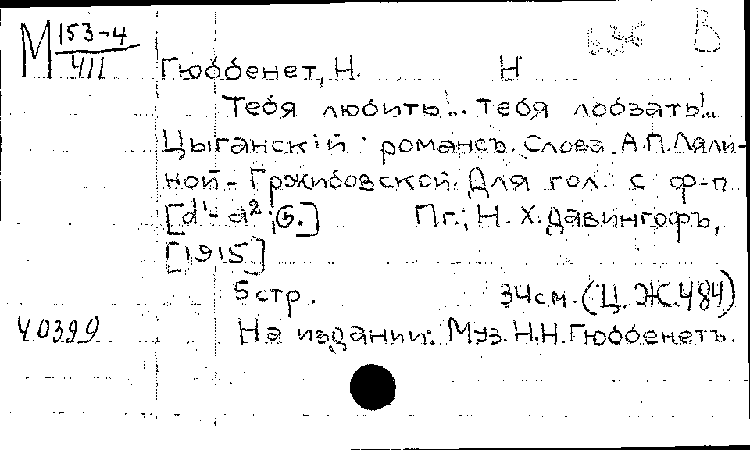 М 153-4
VII
В
Гюббенет, Н. Н
Тебя любить!.. тебя лобзать!..
Цыганскій романсъ. Слова А.П. Ляли-
ной-Гржибовской. Для гол. с ф-п
[d¹-a²; G.] Пг., Н. Х. Давингофъ,
[1915]
5 стр. 34 см. (Ц. Ж. 484)
40399 На издании: Муз. Н.Н. Гюббенетъ.